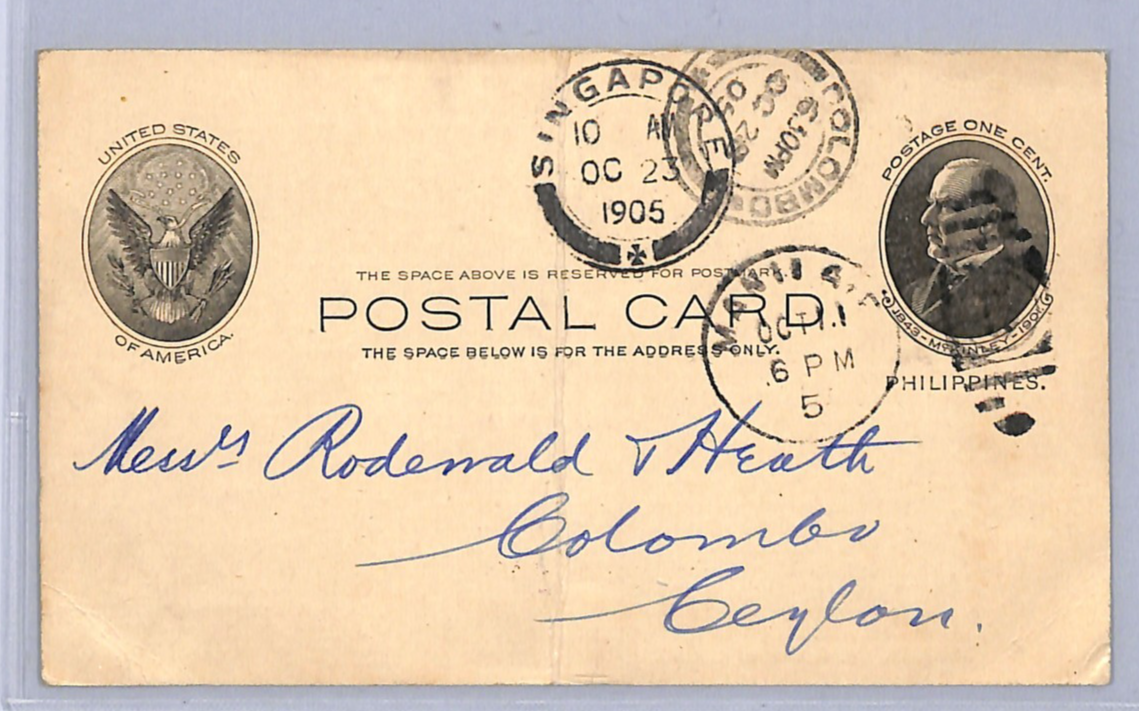 UNITED STATES
OF AMERICA.
SINGAPORE
10 AM
OC 23
1905
COLOMBO
6.30PM
OC 29
05
POSTAGE ONE CENT.
1843-McKINLEY-1901.
PHILIPPINES.
THE SPACE ABOVE IS RESERVED FOR POSTMARK.
POSTAL CARD.
THE SPACE BELOW IS FOR THE ADDRESS ONLY.
MANILA
OCT 11
6 PM
5
Messrs Rodewald & Heath
Colombo
Ceylon.